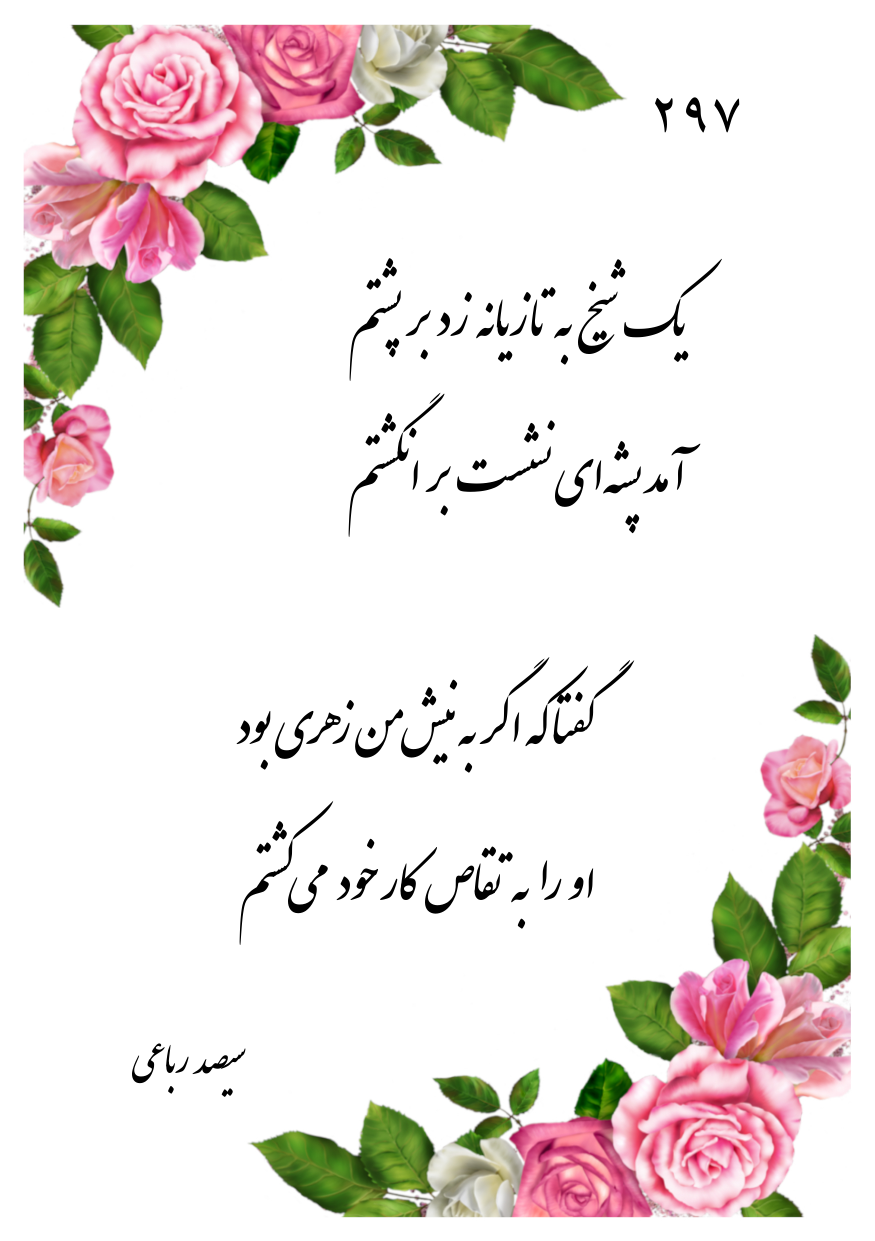 ۲۹۷
یک شیخ به تازیانه زد بر پشتم
آمد پشه‌ای نشست بر انگشتم
گفتا که اگر به نیش من زهری بود
او را به تقاص کار خود می‌کشتم
سیصد رباعی